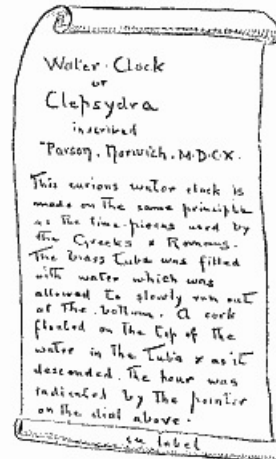 Water-Clock
or
Clepsydra
inscribed
"Parson, Norwich, M.D.C.X.
This curious water clock is
made on the same principle
as the time-pieces used by
the Greeks & Romans.
The brass Tube was filled
with water which was
allowed to slowly run out
at the bottom. A cork
floated on the top of the
water in the Tube & as it
descended, the hour was
indicated by the pointer
on the dial above.
label